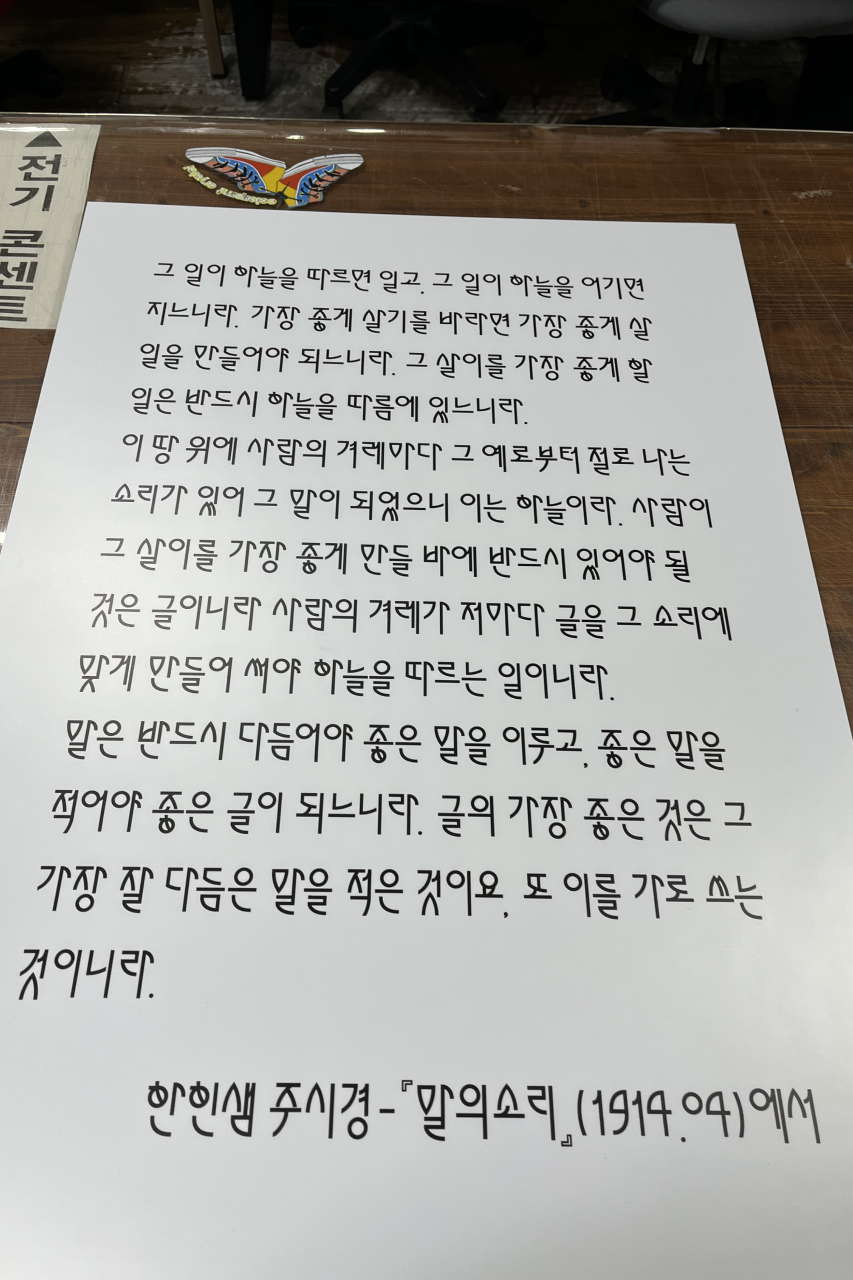 ▲전기 콘센트
그 일이 하늘을 따르면 일고, 그 일이 하늘을 어기면
지느니라. 가장 좋게 살기를 바라면 가장 좋게 살
일을 만들어야 되느니라. 그 살이를 가장 좋게 할
일은 반드시 하늘을 따름에 있느니라.
이 땅 위에 사람의 겨레마다 그 예로부터 절로 나는
소리가 있어 그 말이 되었으니 이는 하늘이라. 사람이
그 살이를 가장 좋게 만들 바에 반드시 있어야 될
것은 글이니라 사람의 겨레가 저마다 글을 그 소리에
맞게 만들어 써야 하늘을 따르는 일이니라.
말은 반드시 다듬어야 좋은 말을 이루고, 좋은 말을
적어야 좋은 글이 되느니라. 글의 가장 좋은 것은 그
가장 잘 다듬은 말을 적은 것이요, 또 이를 가로 쓰는
것이니라.
한힌샘 주시경-『말의소리』(1914.04)에서